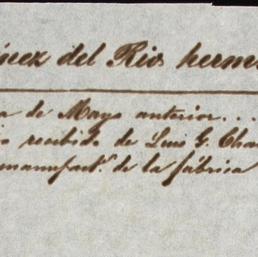 ínez del Rio herm
a de Mayo anterior...
o recibido de Luis G. Cha
manufact.s de la fábrica